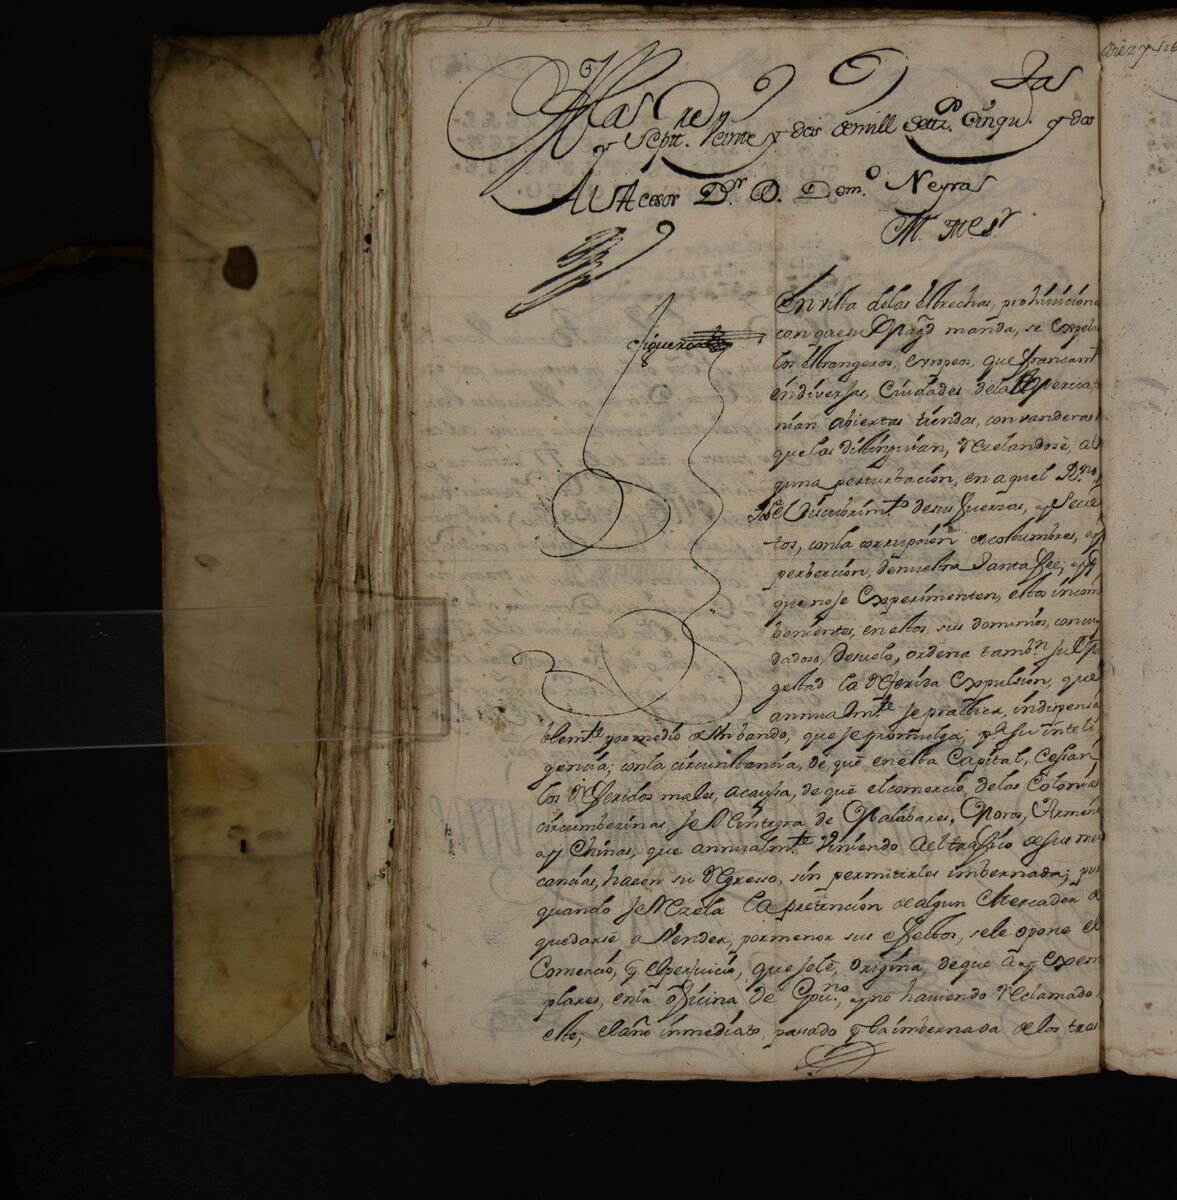 diez y sie
Manila y
y Septt.e Veinte y dos de mill Settz.s Cinqu.ta y dos
Al Acesor D.r D. Dom.o Neyra
M. Ill.e S.r
Figueroa
En vista delas estrechas, prohiuicione
con que su Mag.d manda, se expela
los estrangeros, europeos, que francam.te
en diversas, Ciudades dela America, te
nian abiertas tiendas, con vanderas
que las distinguian, rezelandose, al
guna perturbacion, en aquel R.no,
o el Descubrim.to de sus fuerzas, y Secre
tos, con la corrupcion de costumbres, y
perbercion, de nuestra Santa Fee; y p.a
que no se experimenten, estos incom
benientes, en estos, sus dominios, con cui
dadoso, desuelo, ordena tamb.n su Ma
gestad la referida expulsion, que
annualm.te se practica, indispensa
blem.te por medio de un bando, que se promulga; p.a su inteli
gencia; con la circunstancia, de que en esta Capital, Cesian,
los referidos males, acausa, de que el comercio, delas Colonias
circumbezinas se reintegra de Malabares, Moros, Armeni
y Chinas, que annualm.te viniendo al trafico de sus mer
cancias, hacen su regreso, sin permitirles imbernada; pues
quando se rezela la pretencion de algun Mercader de
quedarse a Vender, por menor sus efectos, se le opone el
Comercio, p.r el perjuicio, que se le, origina, de que ay exem
plares, en la oficina de Gou.no, y no haviendo reclamado
este, el año inmediato pasado p.r la imbernada de los tres